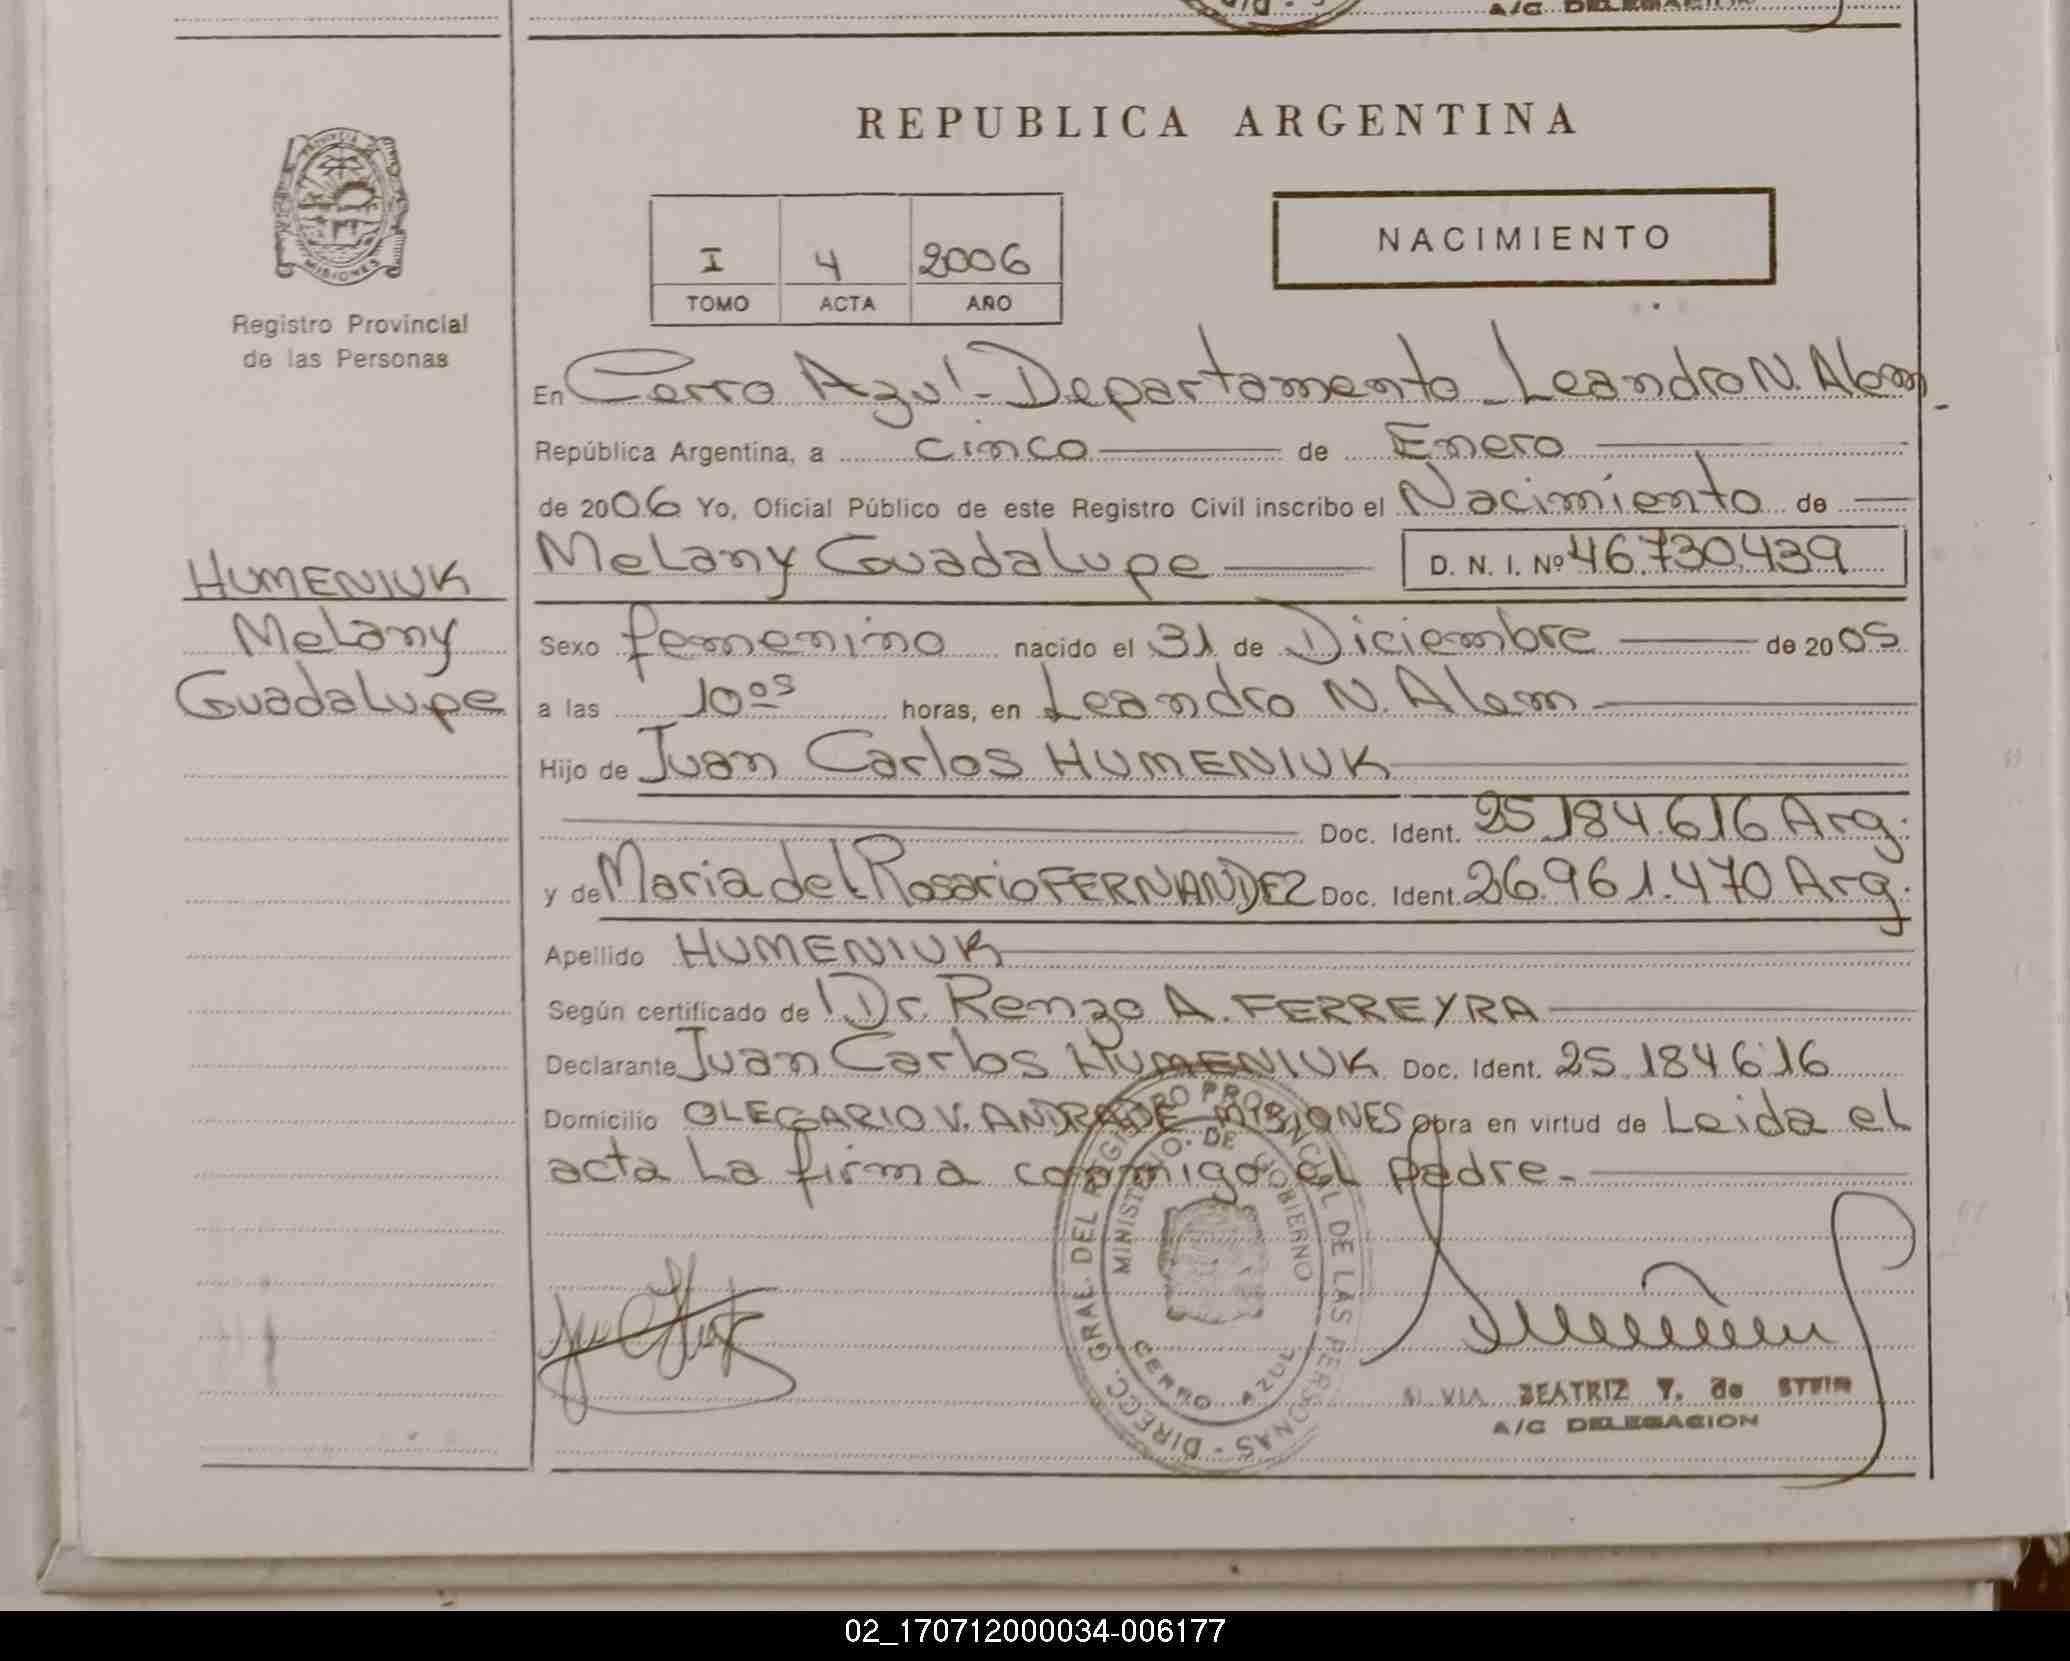 A/C DELEGACION
REPUBLICA ARGENTINA
PROVINCIA
MISIONES
Registro Provincial
de las Personas
I 4 2006
TOMO ACTA AÑO
NACIMIENTO
En Cerro Azul - Departamento Leandro N. Alem -
República Argentina, a cinco de Enero
de 2006 Yo, Oficial Público de este Registro Civil inscribo el Nacimiento de
Melany Guadalupe D. N. I. Nº 46.730.439
HUMENIUK
Melany
Guadalupe
Sexo femenino nacido el 31 de Diciembre de 2005
a las 10 05 horas, en Leandro N. Alem
Hijo de Juan Carlos HUMENIUK
Doc. Ident. 25.184.616 Arg.
y de Maria del Rosario FERNANDEZ Doc. Ident. 26.961.470 Arg.
Apellido HUMENIUK
Según certificado de Dr. Renzo A. FERREYRA
Declarante Juan Carlos HUMENIUK Doc. Ident. 25.184.616
Domicilio OLEGARIO V. ANDRADE - MISIONES obra en virtud de Leida el
acta la firma conmigo el padre.-
DIRECC. GRAL. DEL REGISTRO PROVINCIAL DE LAS PERSONAS -
MINISTERIO DE GOBIERNO
CERRO AZUL
SILVIA BEATRIZ Y. de STEIN
A/C DELEGACION
02_170712000034-006177